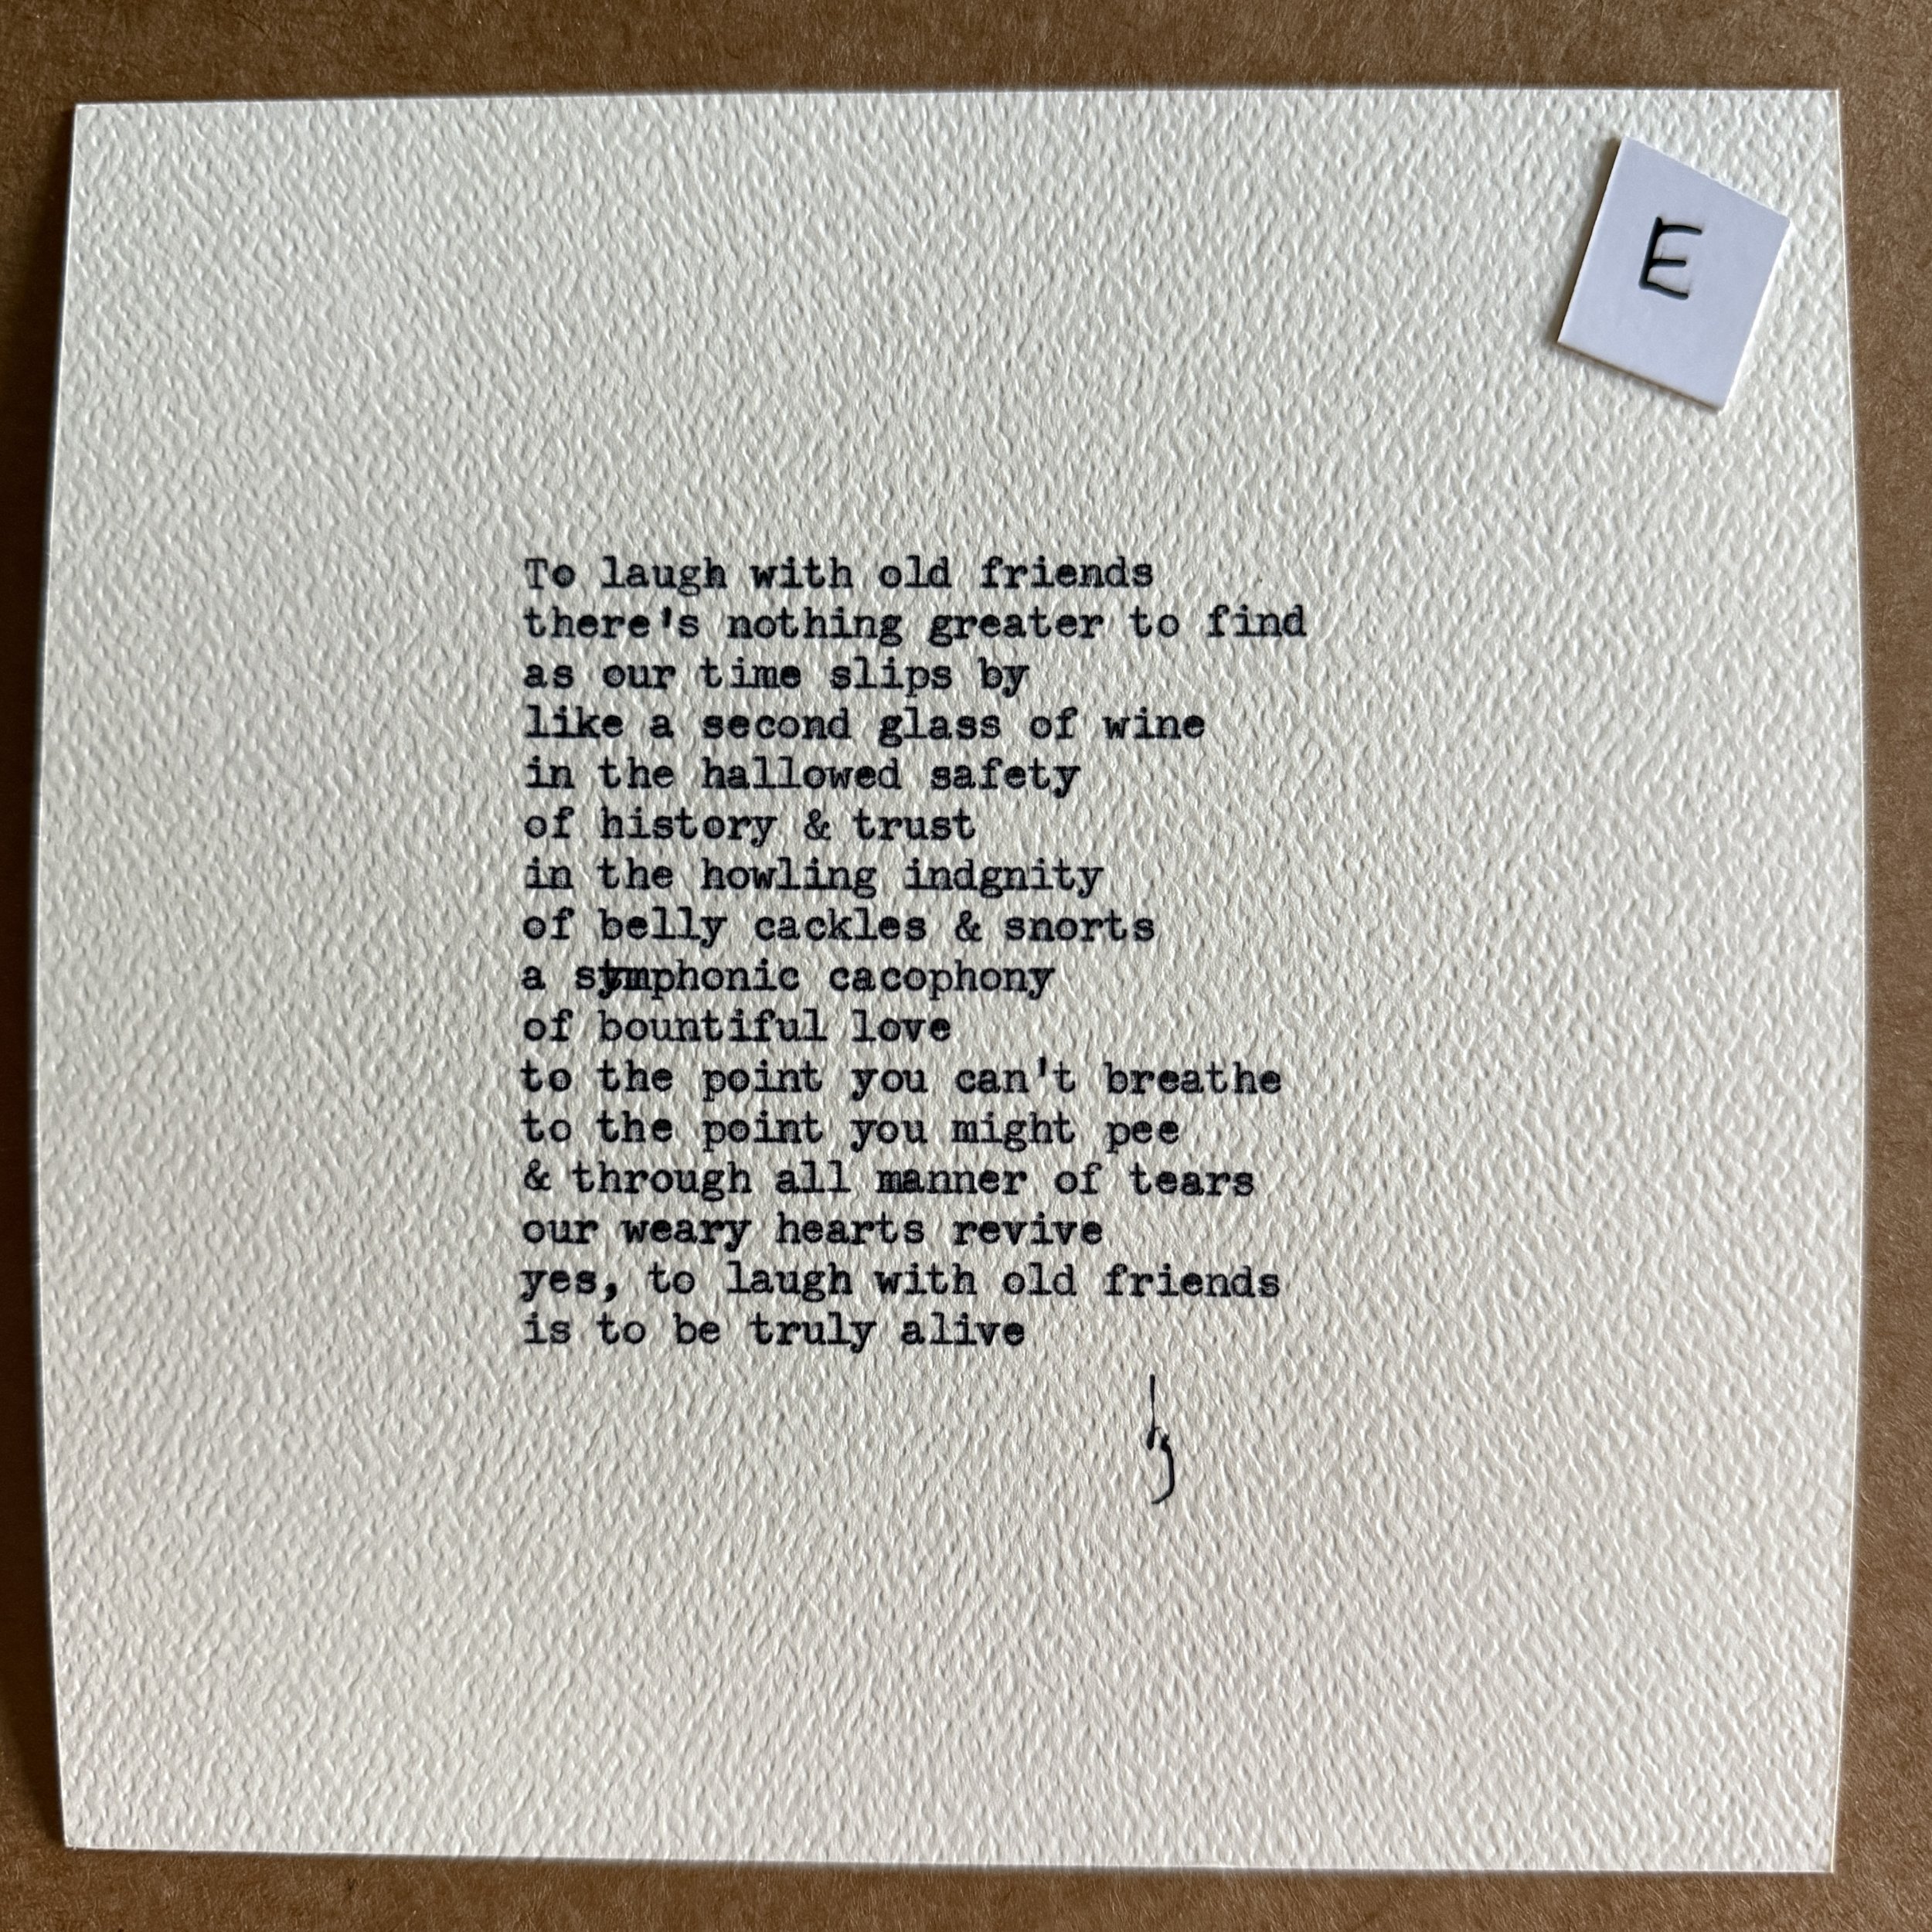 E
To laugh with old friends
there's nothing greater to find
as our time slips by
like a second glass of wine
in the hallowed safety
of history & trust
in the howling indgnity
of belly cackles & snorts
a symphonic cacophony
of bountiful love
to the point you can't breathe
to the point you might pee
& through all manner of tears
our weary hearts revive
yes, to laugh with old friends
is to be truly alive